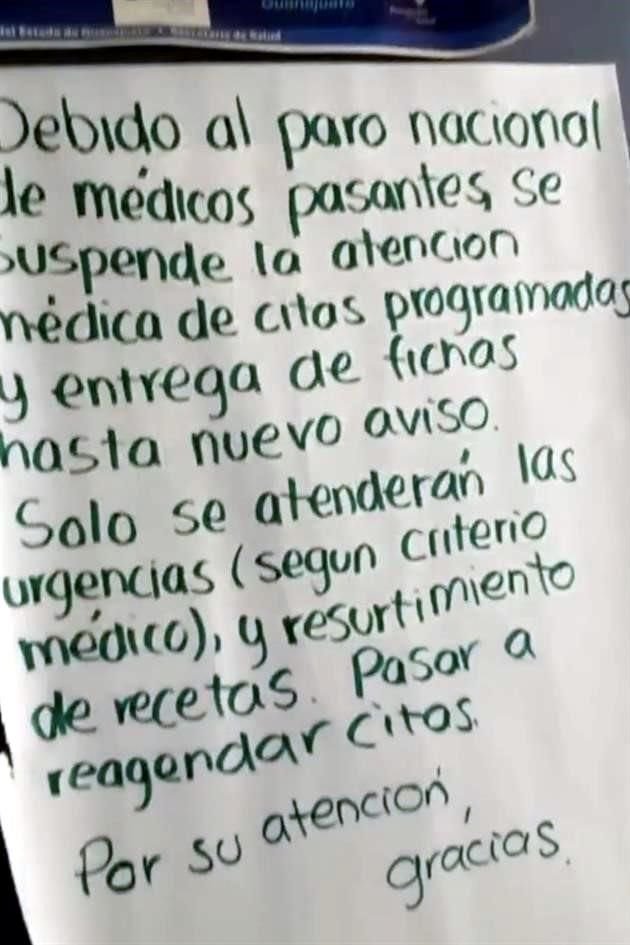 Guanajuato
del Estado de Guanajuato • Secretaría de Salud
Debido al paro nacional
de médicos pasantes, se
suspende la atencion
médica de citas programadas
y entrega de fichas
hasta nuevo aviso.
Solo se atenderán las
urgencias (segun criterio
médico), y resurtimiento
de recetas. Pasar a
reagendar citas.
Por su atención,
gracias.